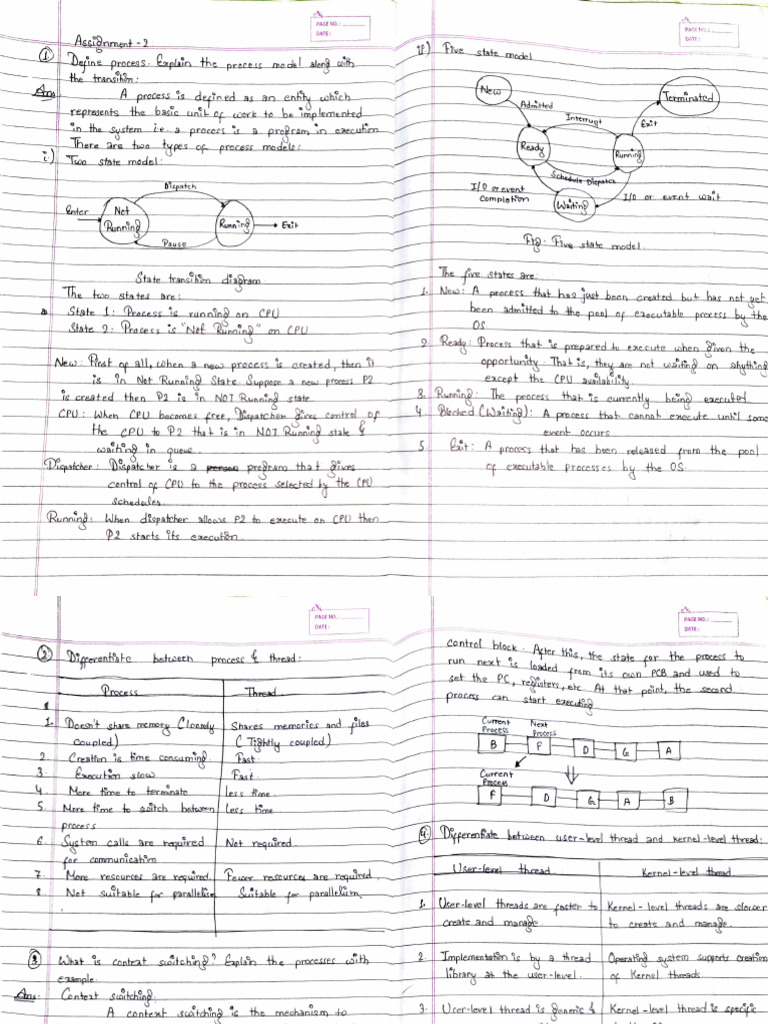 PAGE NO.:
DATE:
Assignment - 2
① Define process. Explain the process model along with
the transition:
Ans
A process is defined as an entity which
represents the basic unit of work to be implemented
in the system i.e. a process is a program in execution
There are two types of process models:
i) Two state model:
Dispatch
Enter
Not
Running
Running
Exit
Pause
State transition diagram
The two states are:
State 1: Process is running on CPU
State 2: Process is "Not Running" on CPU
New: First of all, when a new process is created, then it
is in Not Running State. Suppose a new process P2
is created then P2 is in NOT Running state
CPU: When CPU becomes free, Dispatcher gives control of
the CPU to P2 that is in NOT Running state &
waiting in queue.
Dispatcher: Dispatcher is a program that gives
control of CPU to the process selected by the CPU
schedules.
Running: When dispatcher allows P2 to execute on CPU then
P2 starts its execution.
PAGE NO.:
DATE:
ii) Five state model
New
Terminated
Admitted
Interrupt
Exit
Ready
Running
Schedule Dispatch
I/O or event
completion
Waiting
I/O or event wait
Fig: Five state model.
The five states are:
1. New: A process that has just been created but has not yet
been admitted to the pool of executable process by the
OS.
2. Ready: Process that is prepared to execute when given the
opportunity. That is, they are not waiting on anything
except the CPU availability.
3. Running: The process that is currently being executed
4. Blocked (Waiting): A process that cannot execute until some
event occurs.
5. Exit: A process that has been released from the pool
of executable processes by the OS.
PAGE NO.:
DATE:
② Differentiate between process & thread:
Process Thread
1. Doesn't share memory (loosely Shares memories and files
coupled) (Tightly coupled)
2. Creation is time consuming. Fast
3. Execution slow Fast.
4. More time to terminate less time.
5. More time to switch between less time
process
6. System calls are required Not required.
for communication
7. More resources are required. Fewer resources are required.
8. Not suitable for parallelism Suitable for parallelism.
③ What is context switching? Explain the processes with
example.
Ans: Context switching:
A context switching is the mechanism to
PAGE NO.:
DATE:
control block. After this, the state for the process to
run next is loaded from its own PCB and used to
set the PC, registers, etc. At that point, the second
process can start executing
Current
Process
Next
Process
B F D G A
Current
Process
F D G A B
④ Differentiate between user-level thread and kernel-level thread:
User-level thread Kernel-level thread
1. User-level threads are faster to Kernel-level threads are slower
create and manage. to create and manage.
2. Implementation is by a thread Operating system supports creation
library at the user-level. of Kernel threads.
3. User-level thread is generic & Kernel-level thread is specific